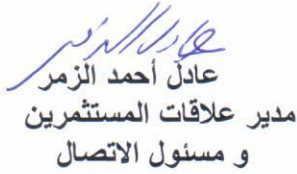 عادل أحمد الزمر
مدير علاقات المستثمرين
و مسئول الاتصال